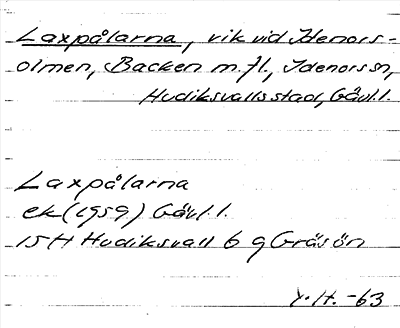 Laxpålarna, vik vid Idenors-
olmen, Backen m.fl., Idenors sn,
Hudiksvalls stad, Gävl.l.
Laxpålarna
ek (1959) Gävl.l.
15H Hudiksvall 6 g Gräsön
Y.H. -63